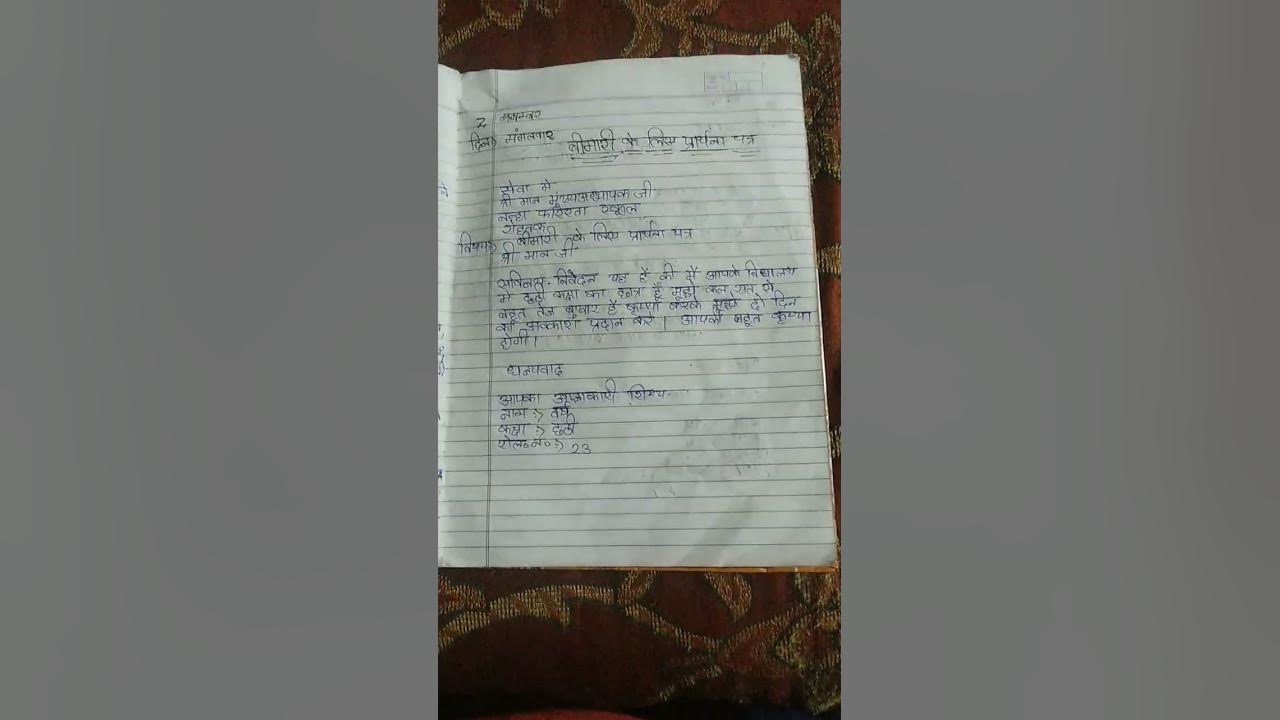 2 नवम्बर
दिन:> मंगलवार
बीमारी के लिए प्रार्थना पत्र
सेवा मे
श्री मान मुख्यअध्यापक जी
नन्हा फरिश्ता स्कूल
रोहतक
विषय:> बीमारी के लिए प्रार्थना पत्र
श्री मान जी
सविनय निवेदन यह है की मैं आपके विद्यालय
मे छठी कक्षा का छात्रा हूँ मुझे कल रात से
बहुत तेज बुखार है कृप्या करके मुझे दो दिन
का अवकाश प्रदान करे। आपकी बहुत कृप्या
होगी।
धन्यवाद
आपका आज्ञाकारी शिष्य
नाम :>
कक्षा :> छठी
रोल०न० :> 23